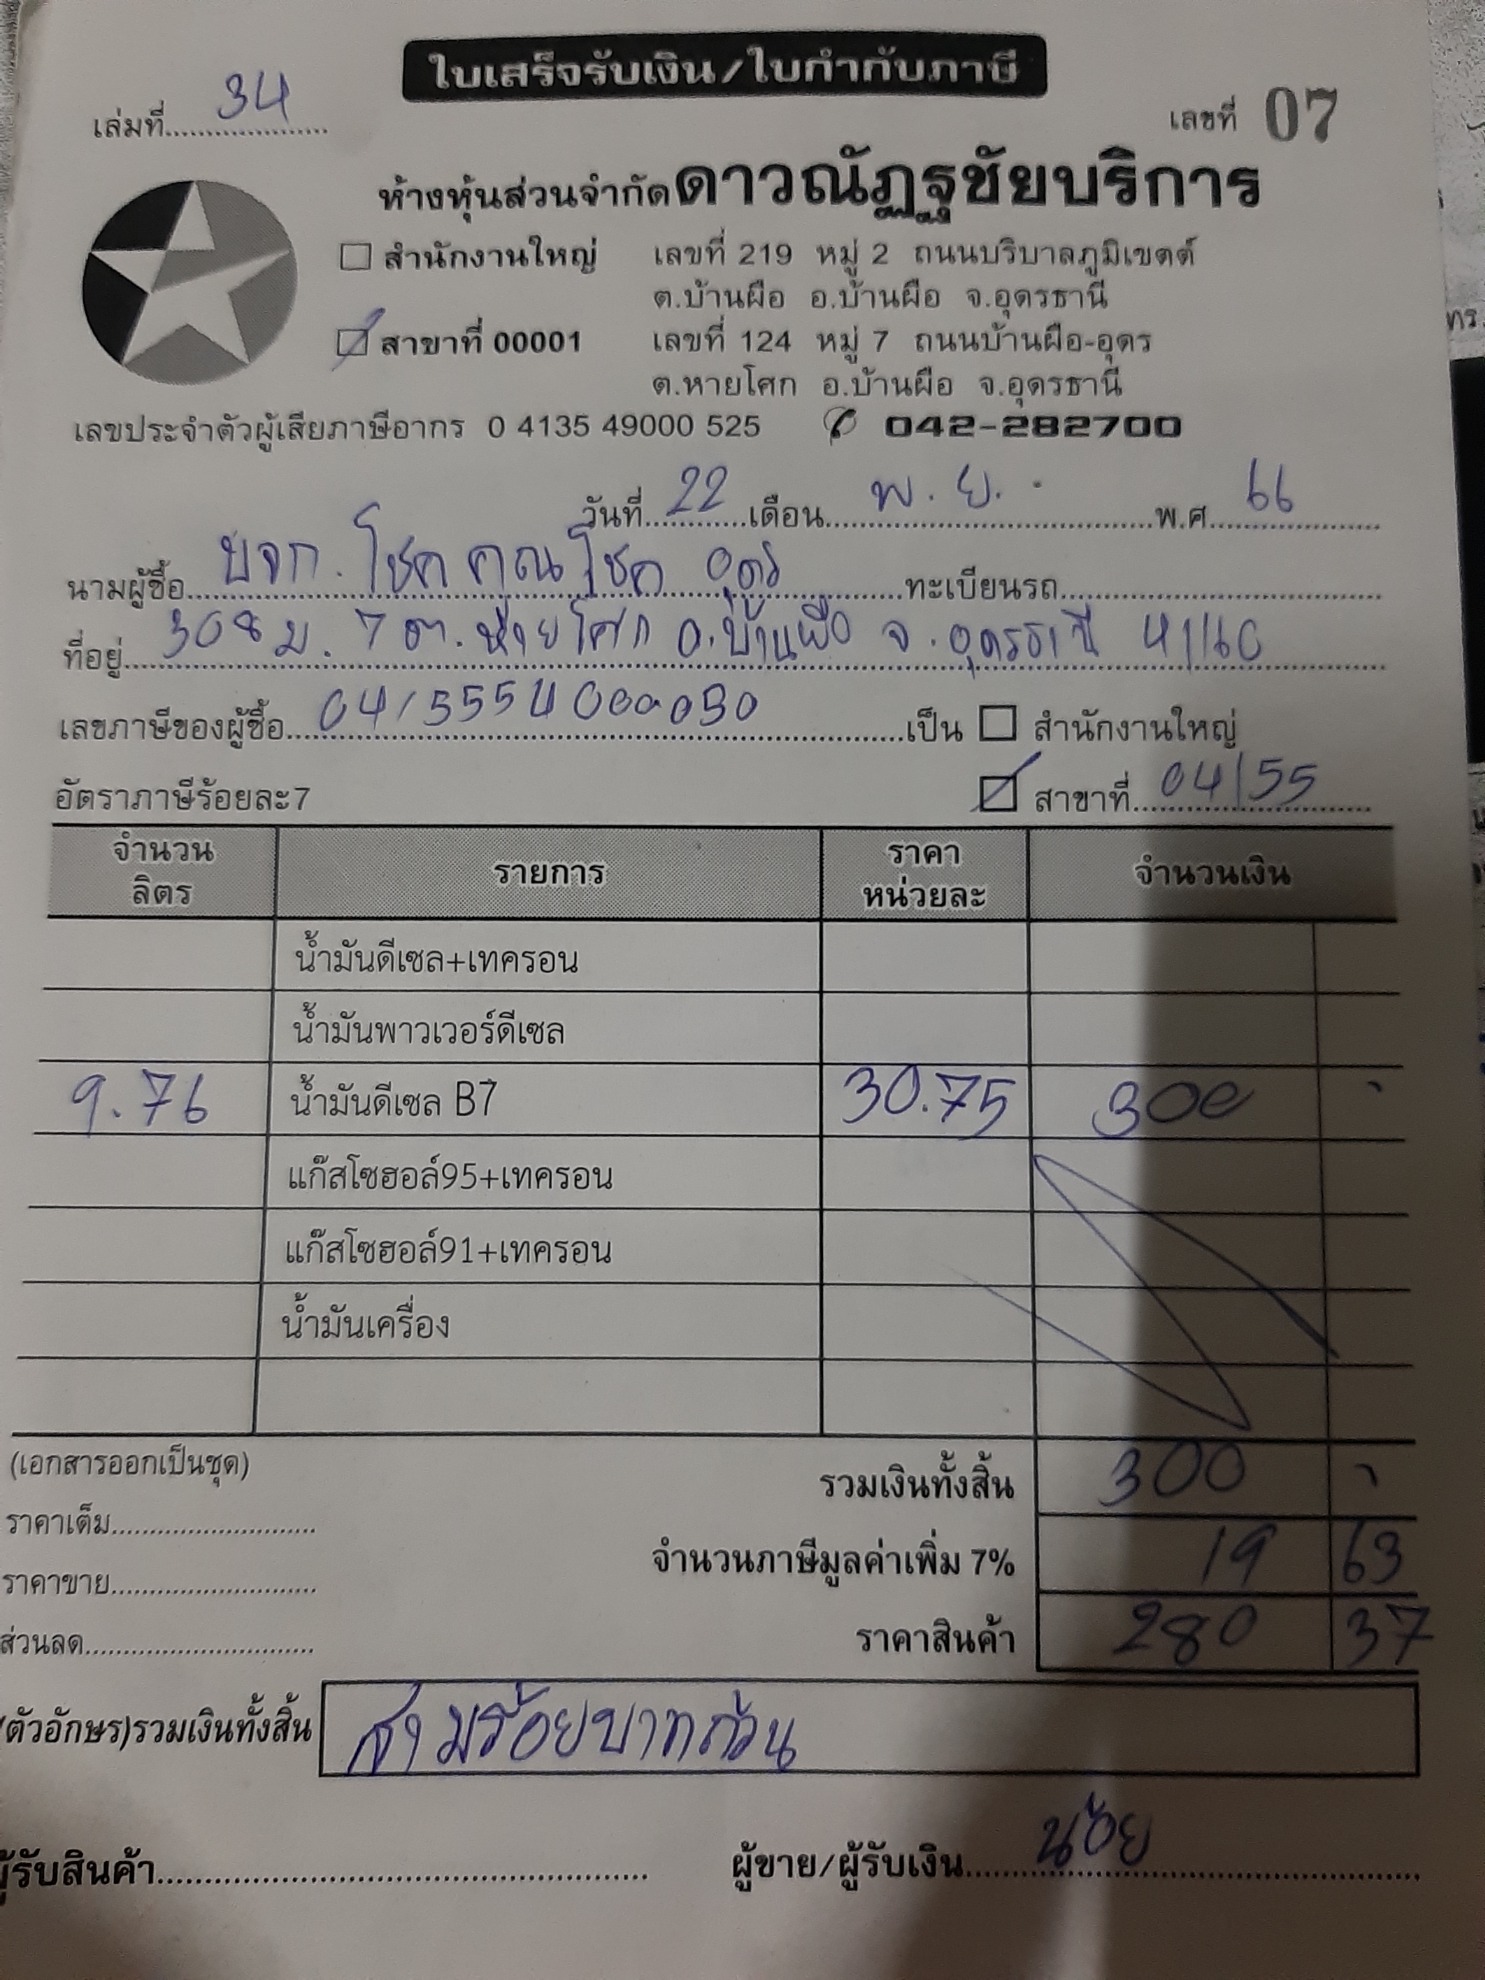 ใบเสร็จรับเงิน/ใบกำกับภาษี
เล่มที่ 34 เลขที่ 07
ห้างหุ้นส่วนจำกัด ดาวณัฏฐชัยบริการ
สำนักงานใหญ่ เลขที่ 219 หมู่ 2 ถนนบริบาลภูมิเขตต์
ต.บ้านผือ อ.บ้านผือ จ.อุดรธานี
สาขาที่ 00001 เลขที่ 124 หมู่ 7 ถนนบ้านผือ-อุดร
ต.หายโศก อ.บ้านผือ จ.อุดรธานี
เลขประจำตัวผู้เสียภาษีอากร 0 4135 49000 525 042-282700
วันที่ 22 เดือน พ.ย. พ.ศ. 66
นามผู้ซื้อ บจก. โชคคูณโชค อุดร ทะเบียนรถ
ที่อยู่ 308 ม. 7 ต.หายโศก อ.บ้านผือ จ.อุดรธานี 41160
เลขภาษีของผู้ซื้อ เป็น สำนักงานใหญ่
อัตราภาษีร้อยละ7 สาขาที่ 04155
จำนวนลิตร รายการ ราคาหน่วยละ จำนวนเงิน
น้ำมันดีเซล+เทครอน
น้ำมันพาวเวอร์ดีเซล
9.76 น้ำมันดีเซล B7 30.75 300 -
แก๊สโซฮอล์95+เทครอน
แก๊สโซฮอล์91+เทครอน
น้ำมันเครื่อง
(เอกสารออกเป็นชุด) รวมเงินทั้งสิ้น 300 -
ราคาเต็ม
จำนวนภาษีมูลค่าเพิ่ม 7% 19 63
ราคาขาย
ส่วนลด ราคาสินค้า 280 37
(ตัวอักษร)รวมเงินทั้งสิ้น สามร้อยบาทถ้วน
ผู้รับสินค้า ผู้ขาย/ผู้รับเงิน น้อย